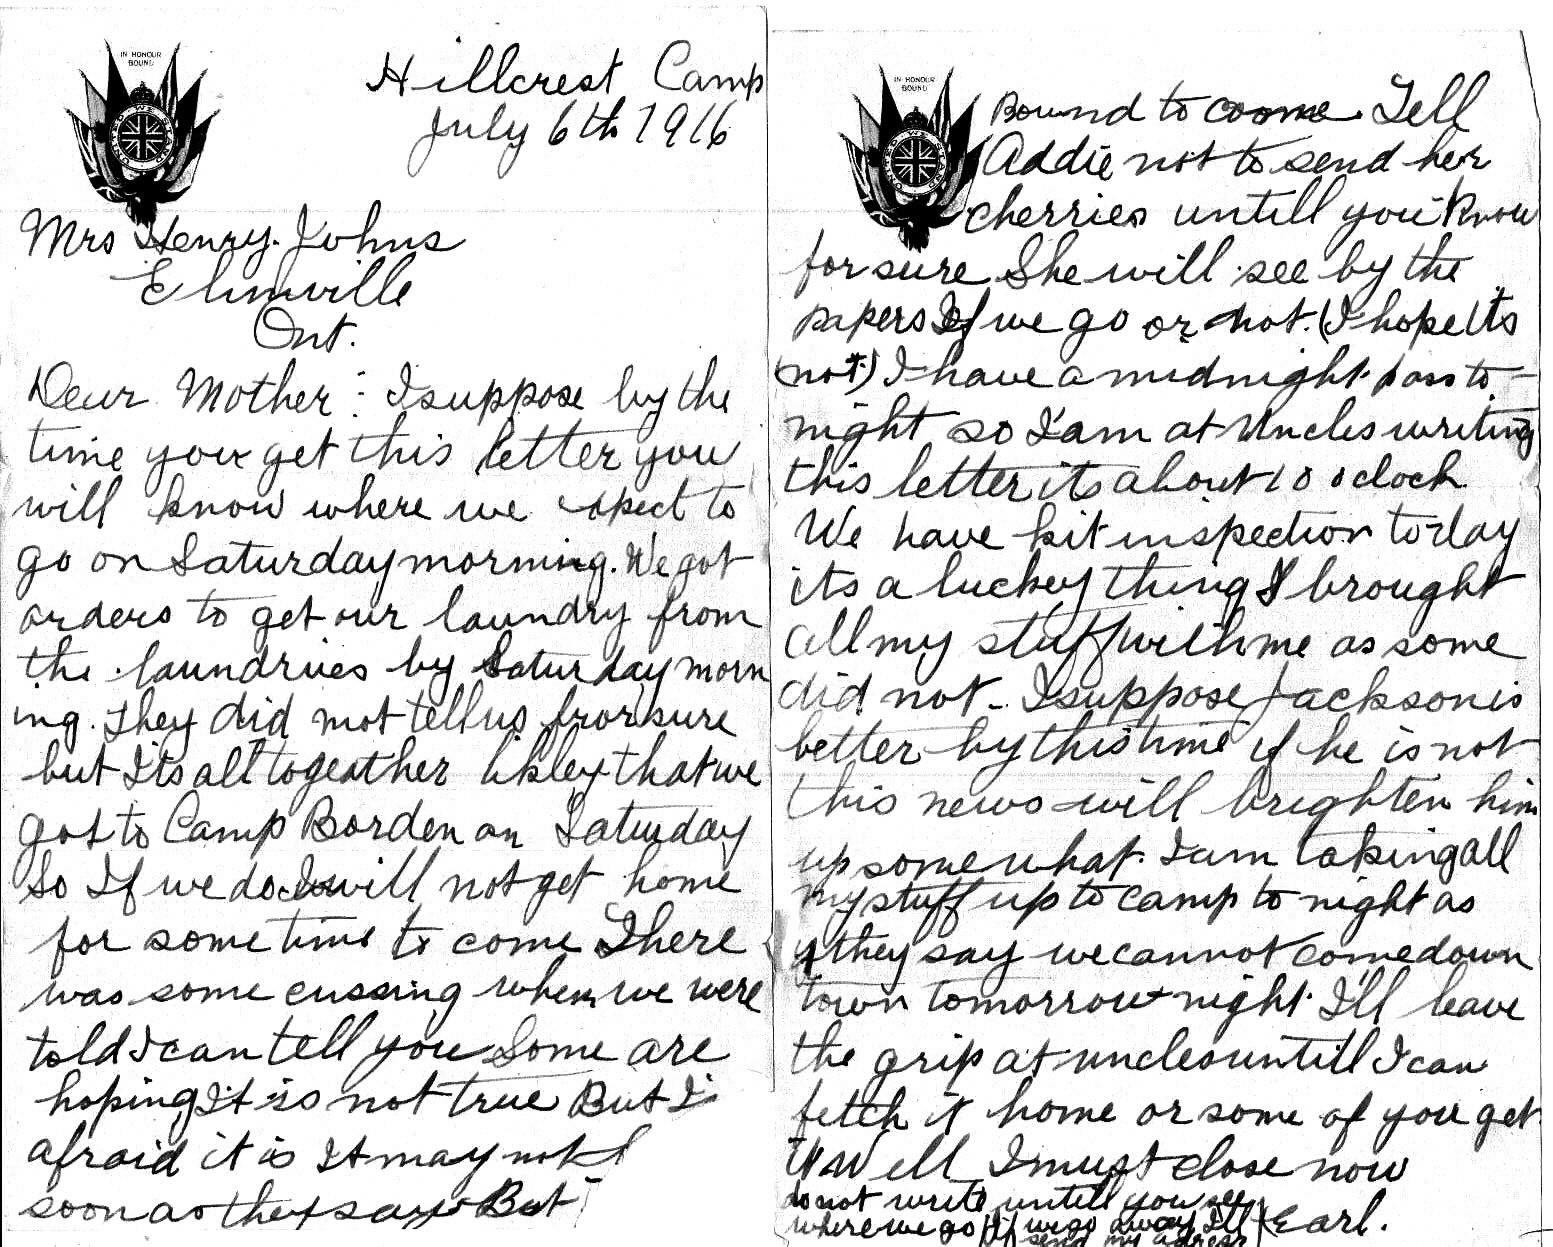 IN HONOUR
BOUND
UNITED WE STAND
Hillcrest Camp
July 6th 1916
Mrs Henry. Johns
Elimville
Ont.
Dear Mother: I suppose by the
time you get this letter you
will know where we expect to
go on Saturday morning. We got
orders to get our laundry from
the laundries by Saturday morn
ing. They did not tell us for sure
but Its all togeather likley that we
got to Camp Borden on Saturday
So If we do I will not get home
for some time to come There
was some cussing when we were
told I can tell you Some are
hoping It is not true But I'
afraid it is It may not
soon as they say But
IN HONOUR
BOUND
UNITED WE STAND
Bound to coome. Tell
Addie not to send her
cherries untill you know
for sure She will see by the
papers If we go or not. (I hope Its
not) I have a midnight pass to-
night so I'am at Uncles writing
this letter its about 10 oclock
We have kit inspection to-day
its a luckey thing I brought
all my stuff with me as some
did not. I suppose Jackson is
better by this time if he is not
this news will brighten him
up somewhat. I am taking all
my stuff up to camp to night as
they say we cannot come down
town tomorrow night. I'll leave
the grip at uncles untill I can
fetch it home or some of you get
it Well I must close now
do not write untill you see
where we go If we go away I'll
send my adress
Earl.